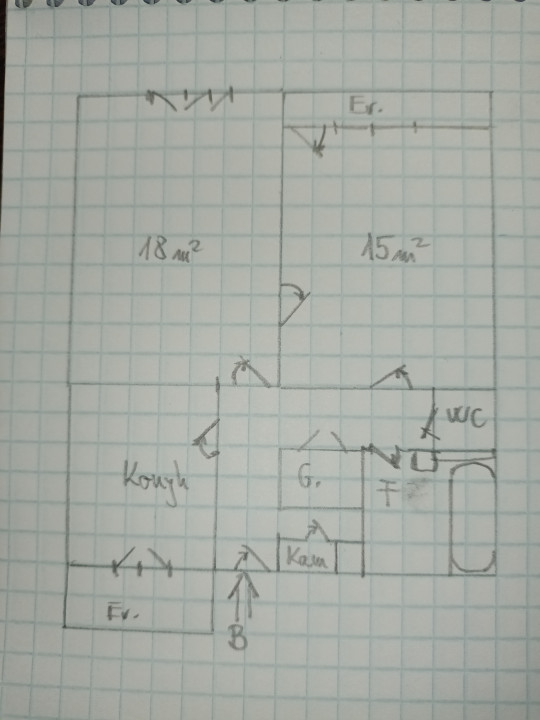 Er.
18 m²
15 m²
WC
Konyh
G.
F
Kam
Er.
B